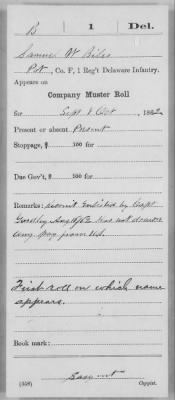 B 1 Del.
Samuel W Biles
Pvt, Co. F, 1 Reg't Delaware Infantry.
Appears on
Company Muster Roll
for Sept & Oct, 1862
Present or absent Present
Stoppage, $ 100 for
Due Gov't, $ 100 for
Remarks: Recruit Enlisted by Capt
Aug 62 Has not drawn
any pay from U.S.
First roll on which name
appears.
Book mark:
(358) Copyist.